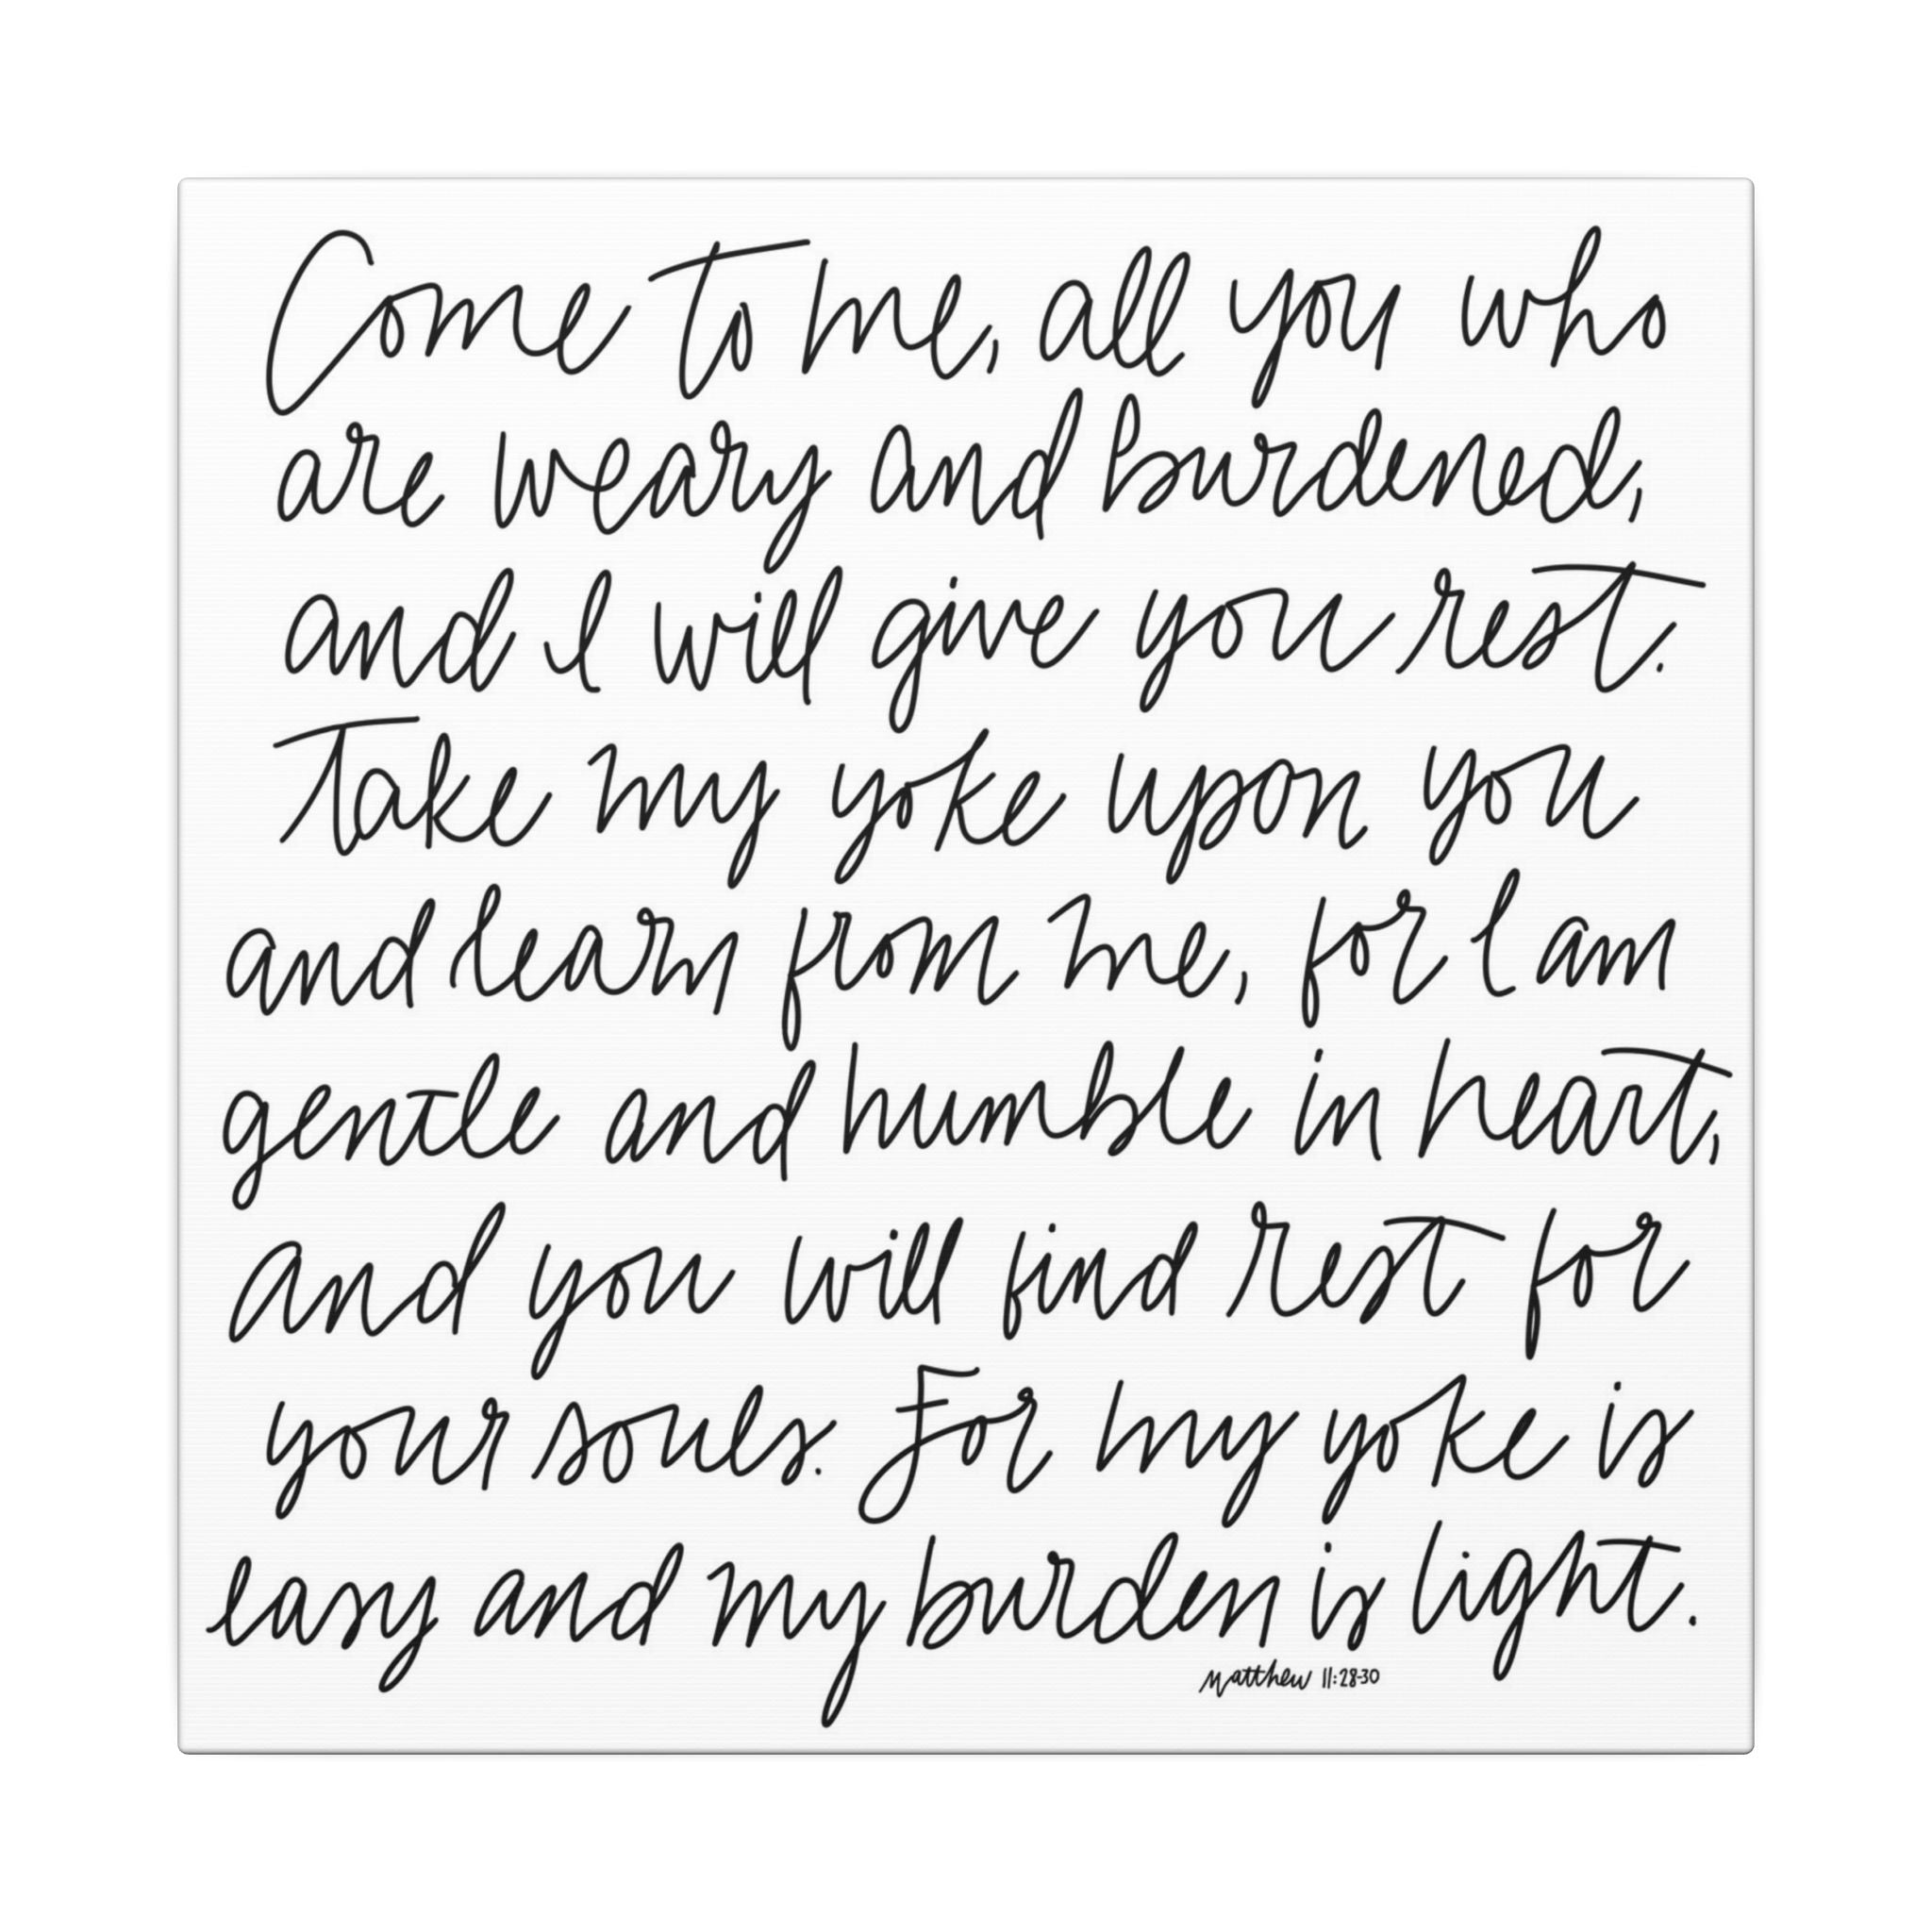 Come to me, all you who
are weary and burdened,
and I will give you rest.
Take my yoke upon you
and learn from me, for I am
gentle and humble in heart,
and you will find rest for
your souls. For my yoke is
easy and my burden is light.
Matthew 11:28-30